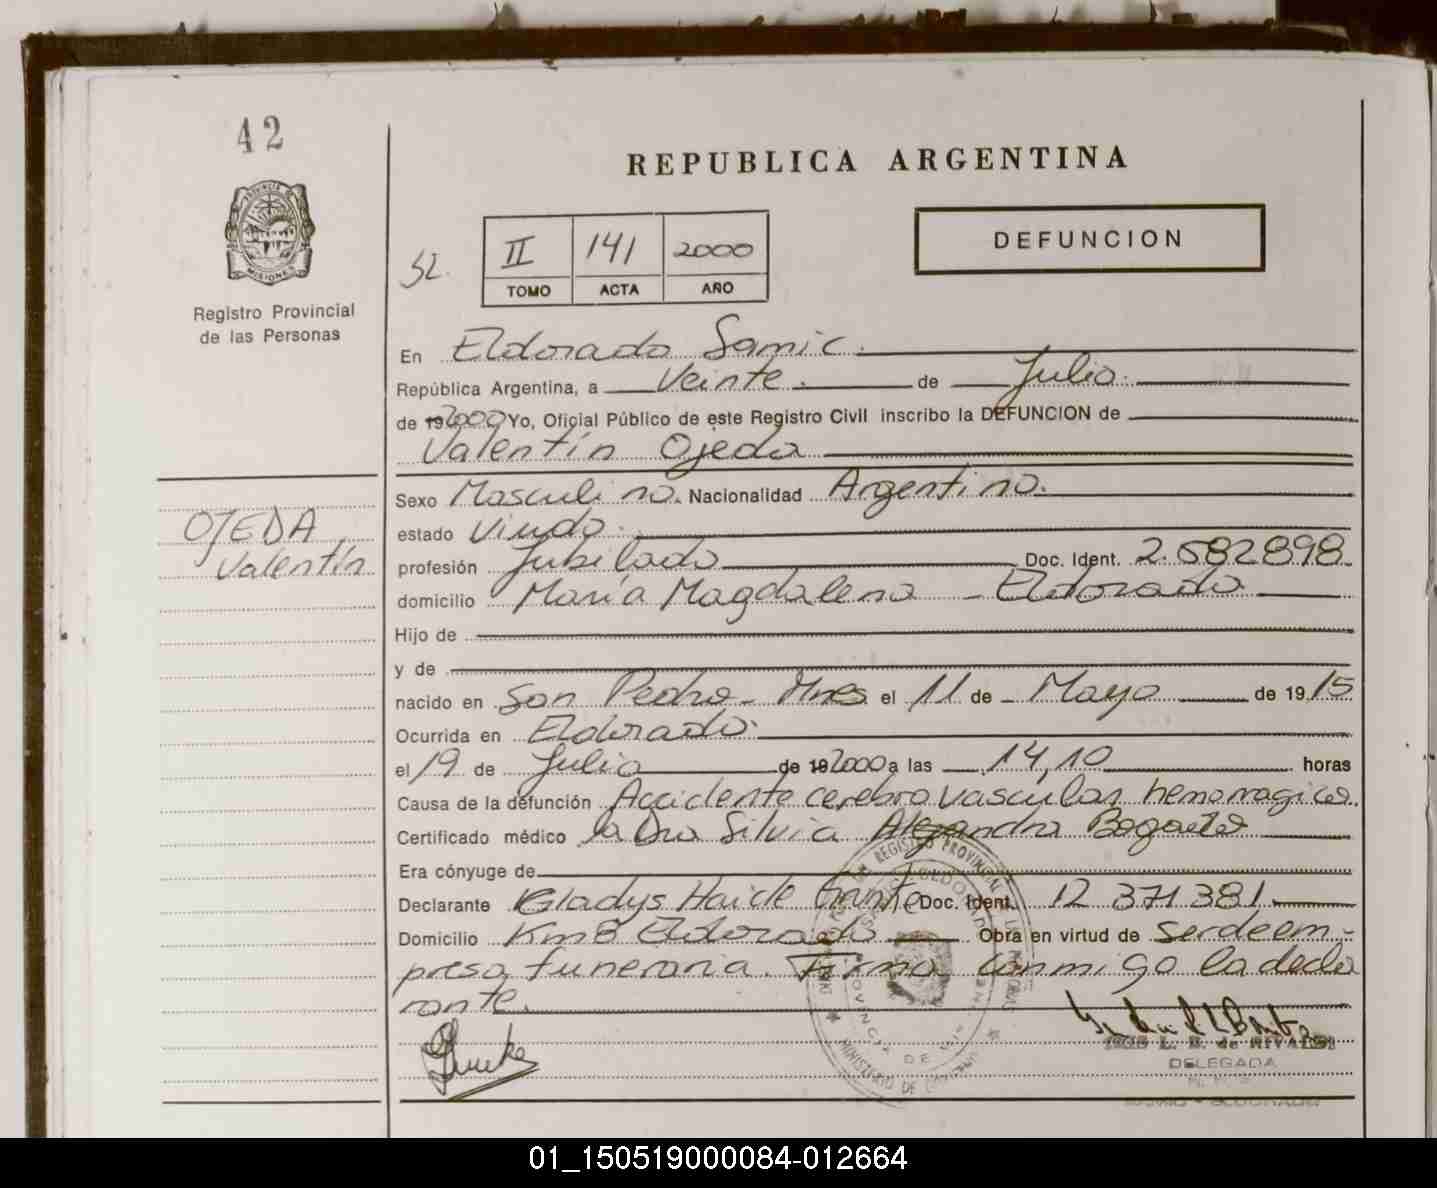 42
REPUBLICA ARGENTINA
DEFUNCION
II 141 2000
TOMO ACTA AÑO
MISIONES
Registro Provincial
de las Personas
En Eldorado Samic.
República Argentina, a Veinte. de Julio.
de 192000 Yo, Oficial Público de este Registro Civil inscribo la DEFUNCION de
Valentín Ojeda
Sexo Masculino. Nacionalidad Argentino.
OJEDA
Valentín
estado Viudo.
profesión Jubilado Doc. Ident. 2.582898
domicilio María Magdalena - Eldorado
Hijo de
y de
nacido en San Pedro - Mnes el 11 de Mayo de 19 15
Ocurrida en Eldorado.
el 19 de Julio de 192000 a las 14,10 horas
Causa de la defunción Accidente cerebro vascular hemorragico.
Certificado médico la Dra Silvia Alejandra
Era cónyuge de
Declarante Gladys Haide Doc. Ident. 12 371 381
Domicilio Km 8 Eldorado Obra en virtud de ser de em-
presa funeraria. Firma conmigo la decla
rante.
DE RIVALDI
DELEGADA
01_150519000084-012664